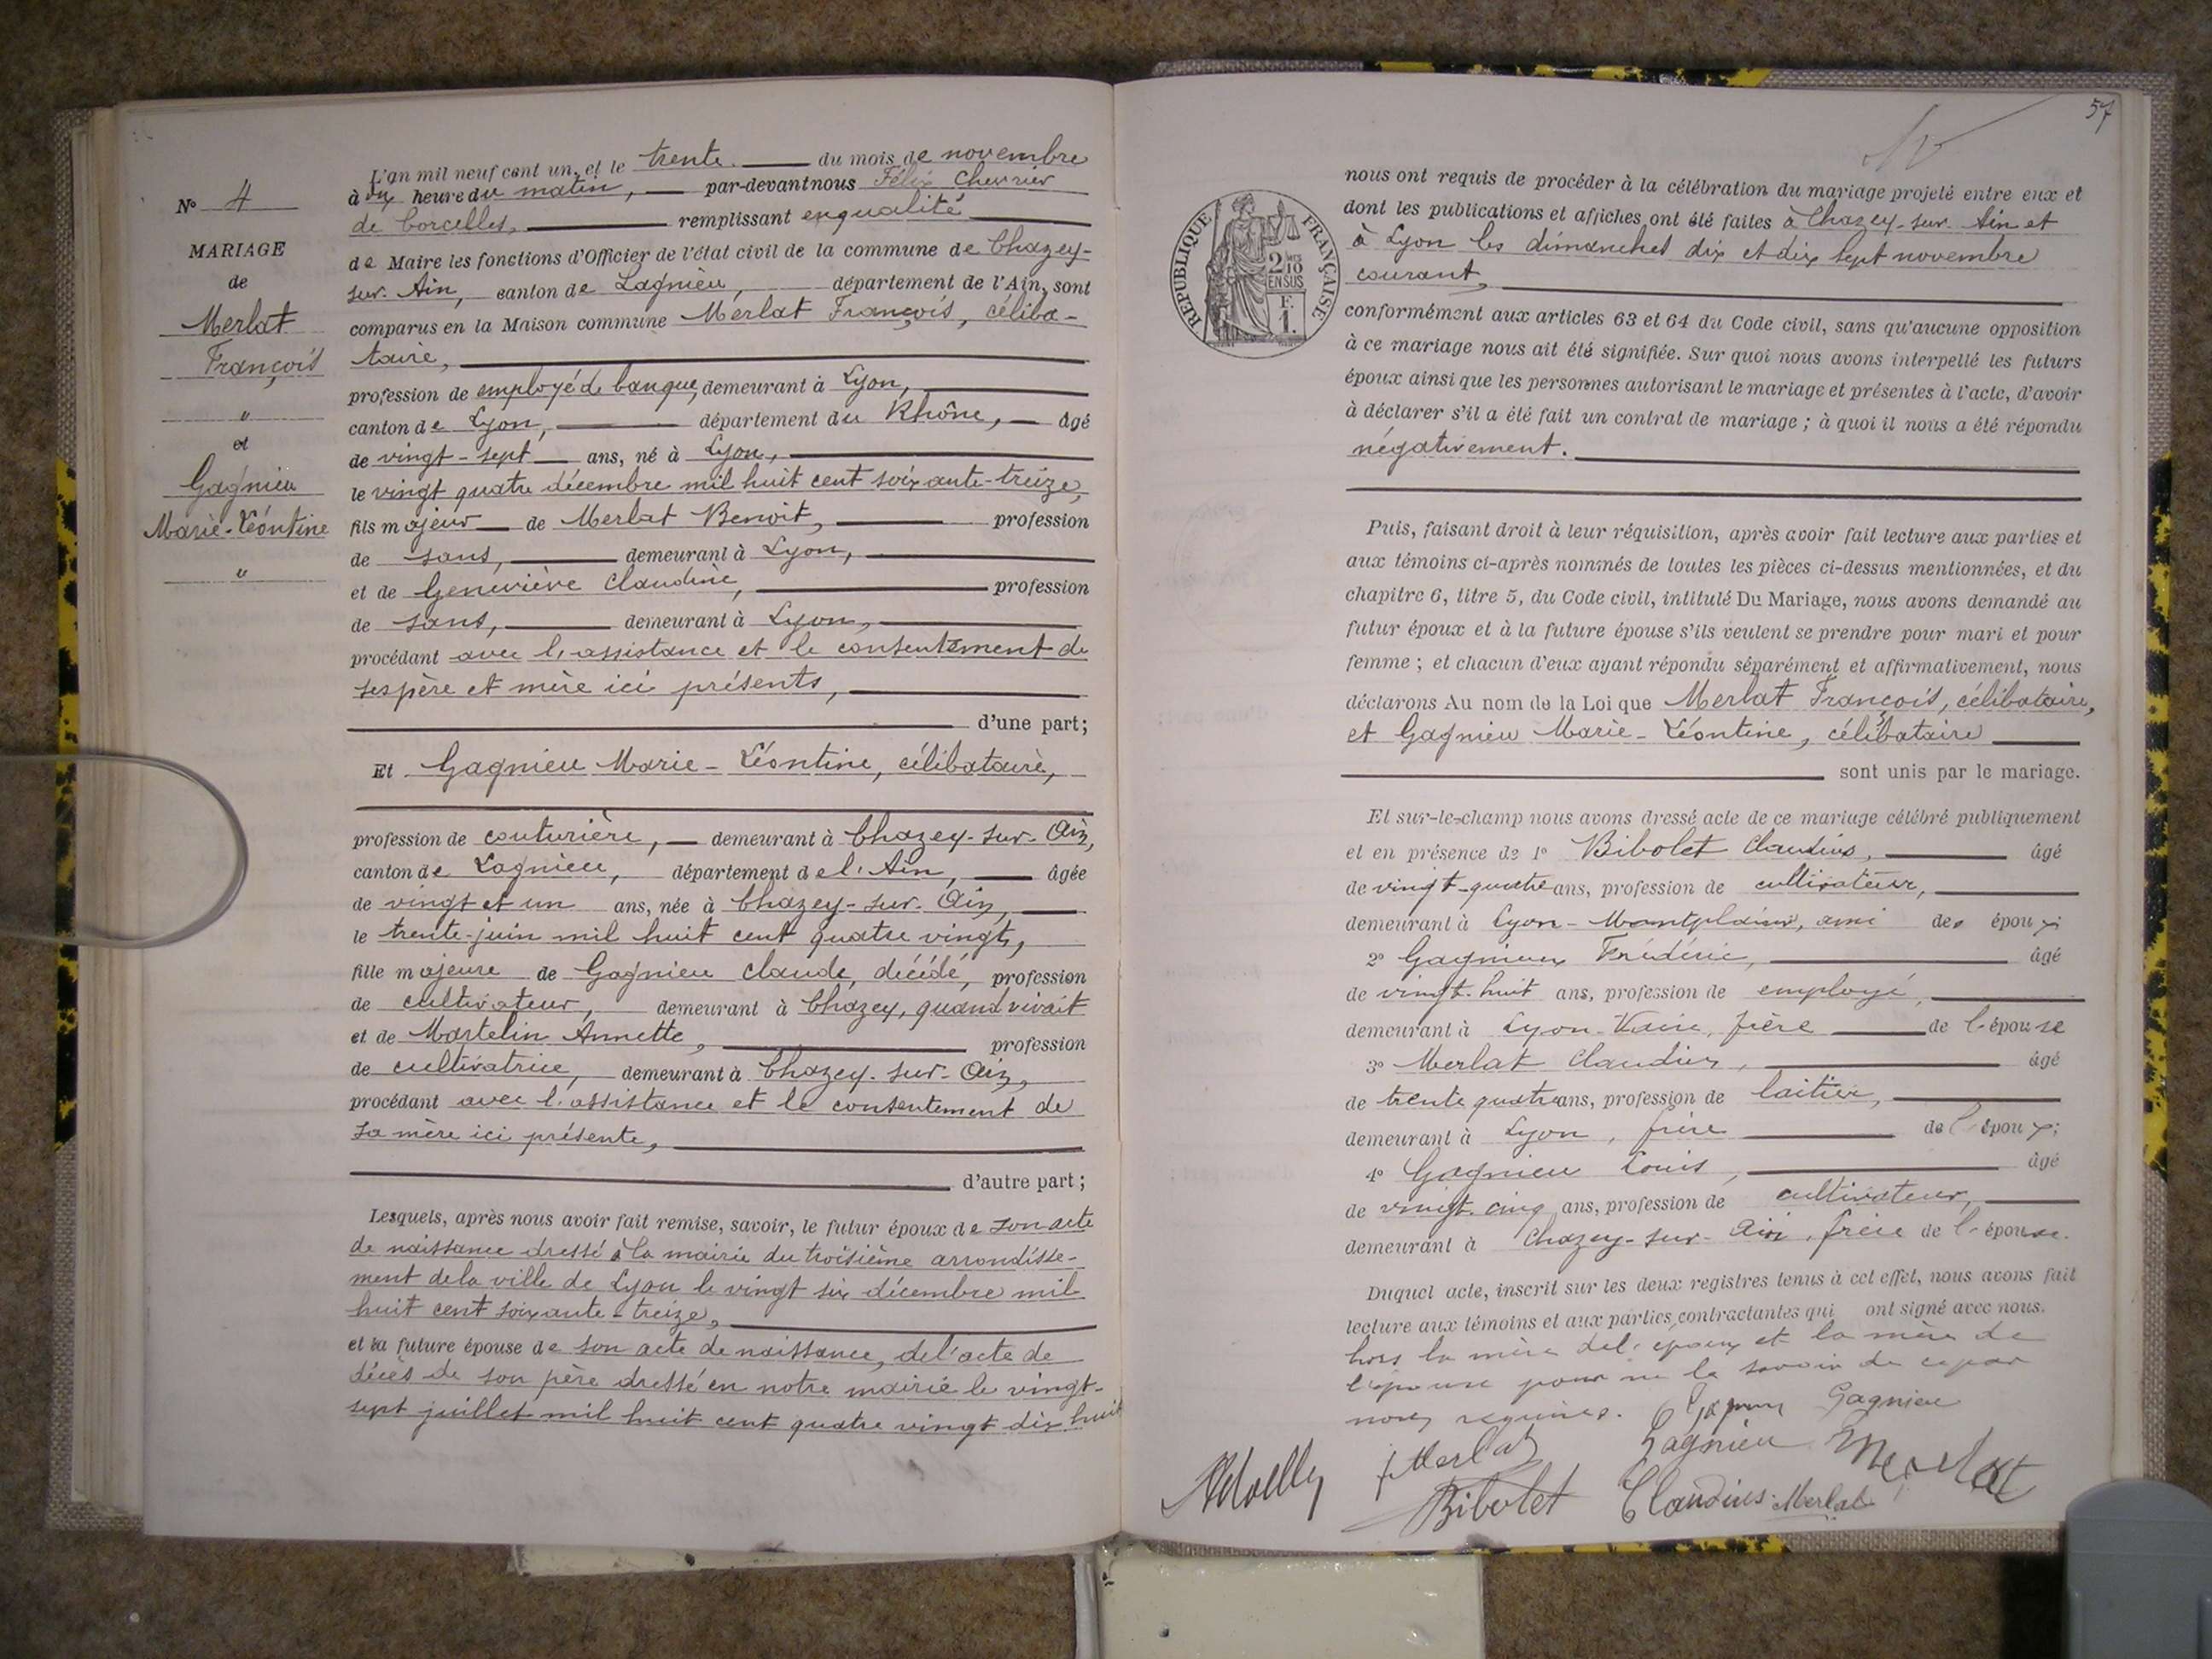 N° 4
MARIAGE
de
Merlat
François
"
et
Gagnieu
Marie-Léontine
"
L'an mil neuf cent un, et le trente du mois de novembre
à dix heure du matin, par-devant nous Félix Chevrier
de Corcelles, remplissant en qualité
de Maire les fonctions d'Officier de l'état civil de la commune de Chazey-
sur-Ain, canton de Lagnieu, département de l'Ain, sont
comparus en la Maison commune Merlat François, céliba-
taire,
profession de employé de banque, demeurant à Lyon,
canton de Lyon, département du Rhône, âgé
de vingt-sept ans, né à Lyon,
le vingt quatre décembre mil huit cent soixante-treize,
fils majeur de Merlat Benoit, profession
de sans, demeurant à Lyon,
et de Geneviève Claudine, profession
de sans, demeurant à Lyon,
procédant avec l'assistance et le consentement de
ses père et mère ici présents,
d'une part;
Et Gagnieu Marie-Léontine, célibataire,
profession de couturière, demeurant à Chazey-sur-Ain,
canton de Lagnieu, département de l'Ain, âgée
de vingt et un ans, née à Chazey-sur-Ain,
le trente-juin mil huit cent quatre vingts,
fille majeure de Gagnieu Claude, décédé, profession
de cultivateur, demeurant à Chazey, quand vivait
et de Martelin Annette, profession
de cultivatrice, demeurant à Chazey-sur-Ain,
procédant avec l'assistance et le consentement de
sa mère ici présente,
d'autre part;
Lesquels, après nous avoir fait remise, savoir, le futur époux de son acte
de naissance dressé à la mairie du troisième arrondisse-
ment de la ville de Lyon le vingt six décembre mil
huit cent soixante-treize,
et la future épouse de son acte de naissance, de l'acte de
décès de son père dressé en notre mairie le vingt-
sept juillet mil huit cent quatre vingt dix huit
57
RÉPUBLIQUE FRANÇAISE
2/10 EN SUS
F. 1.
nous ont requis de procéder à la célébration du mariage projeté entre eux et
dont les publications et affiches ont été faites à Chazey-sur-Ain et
à Lyon les dimanches dix et dix sept novembre
courant,
conformément aux articles 63 et 64 du Code civil, sans qu'aucune opposition
à ce mariage nous ait été signifiée. Sur quoi nous avons interpellé les futurs
époux ainsi que les personnes autorisant le mariage et présentes à l'acte, d'avoir
à déclarer s'il a été fait un contrat de mariage; à quoi il nous a été répondu
négativement.
Puis, faisant droit à leur réquisition, après avoir fait lecture aux parties et
aux témoins ci-après nommés de toutes les pièces ci-dessus mentionnées, et du
chapitre 6, titre 5, du Code civil, intitulé Du Mariage, nous avons demandé au
futur époux et à la future épouse s'ils veulent se prendre pour mari et pour
femme; et chacun d'eux ayant répondu séparément et affirmativement, nous
déclarons Au nom de la Loi que Merlat François, célibataire,
et Gagnieu Marie-Léontine, célibataire
sont unis par le mariage.
Et sur-le-champ nous avons dressé acte de ce mariage célébré publiquement
et en présence de 1° Bibolet Claudius, âgé
de vingt-quatre ans, profession de cultivateur,
demeurant à Lyon-Montplaisir, ami des époux;
2° Gagnieu Frédéric, âgé
de vingt-huit ans, profession de employé,
demeurant à Lyon-Vaise, frère de l'épouse
3° Merlat Claudius, âgé
de trente quatre ans, profession de laitier,
demeurant à Lyon, frère de l'époux;
4° Gagnieu Louis, âgé
de vingt-cinq ans, profession de cultivateur,
demeurant à Chazey-sur-Ain, frère de l'épouse.
Duquel acte, inscrit sur les deux registres tenus à cet effet, nous avons fait
lecture aux témoins et aux parties contractantes qui ont signé avec nous.
hors la mère de l'époux et la mère de
l'épouse pour ne le savoir de ce par
nous requises. Gagnieu
Merlat Gagnieu Merlat
Bibolet Claudius Merlat